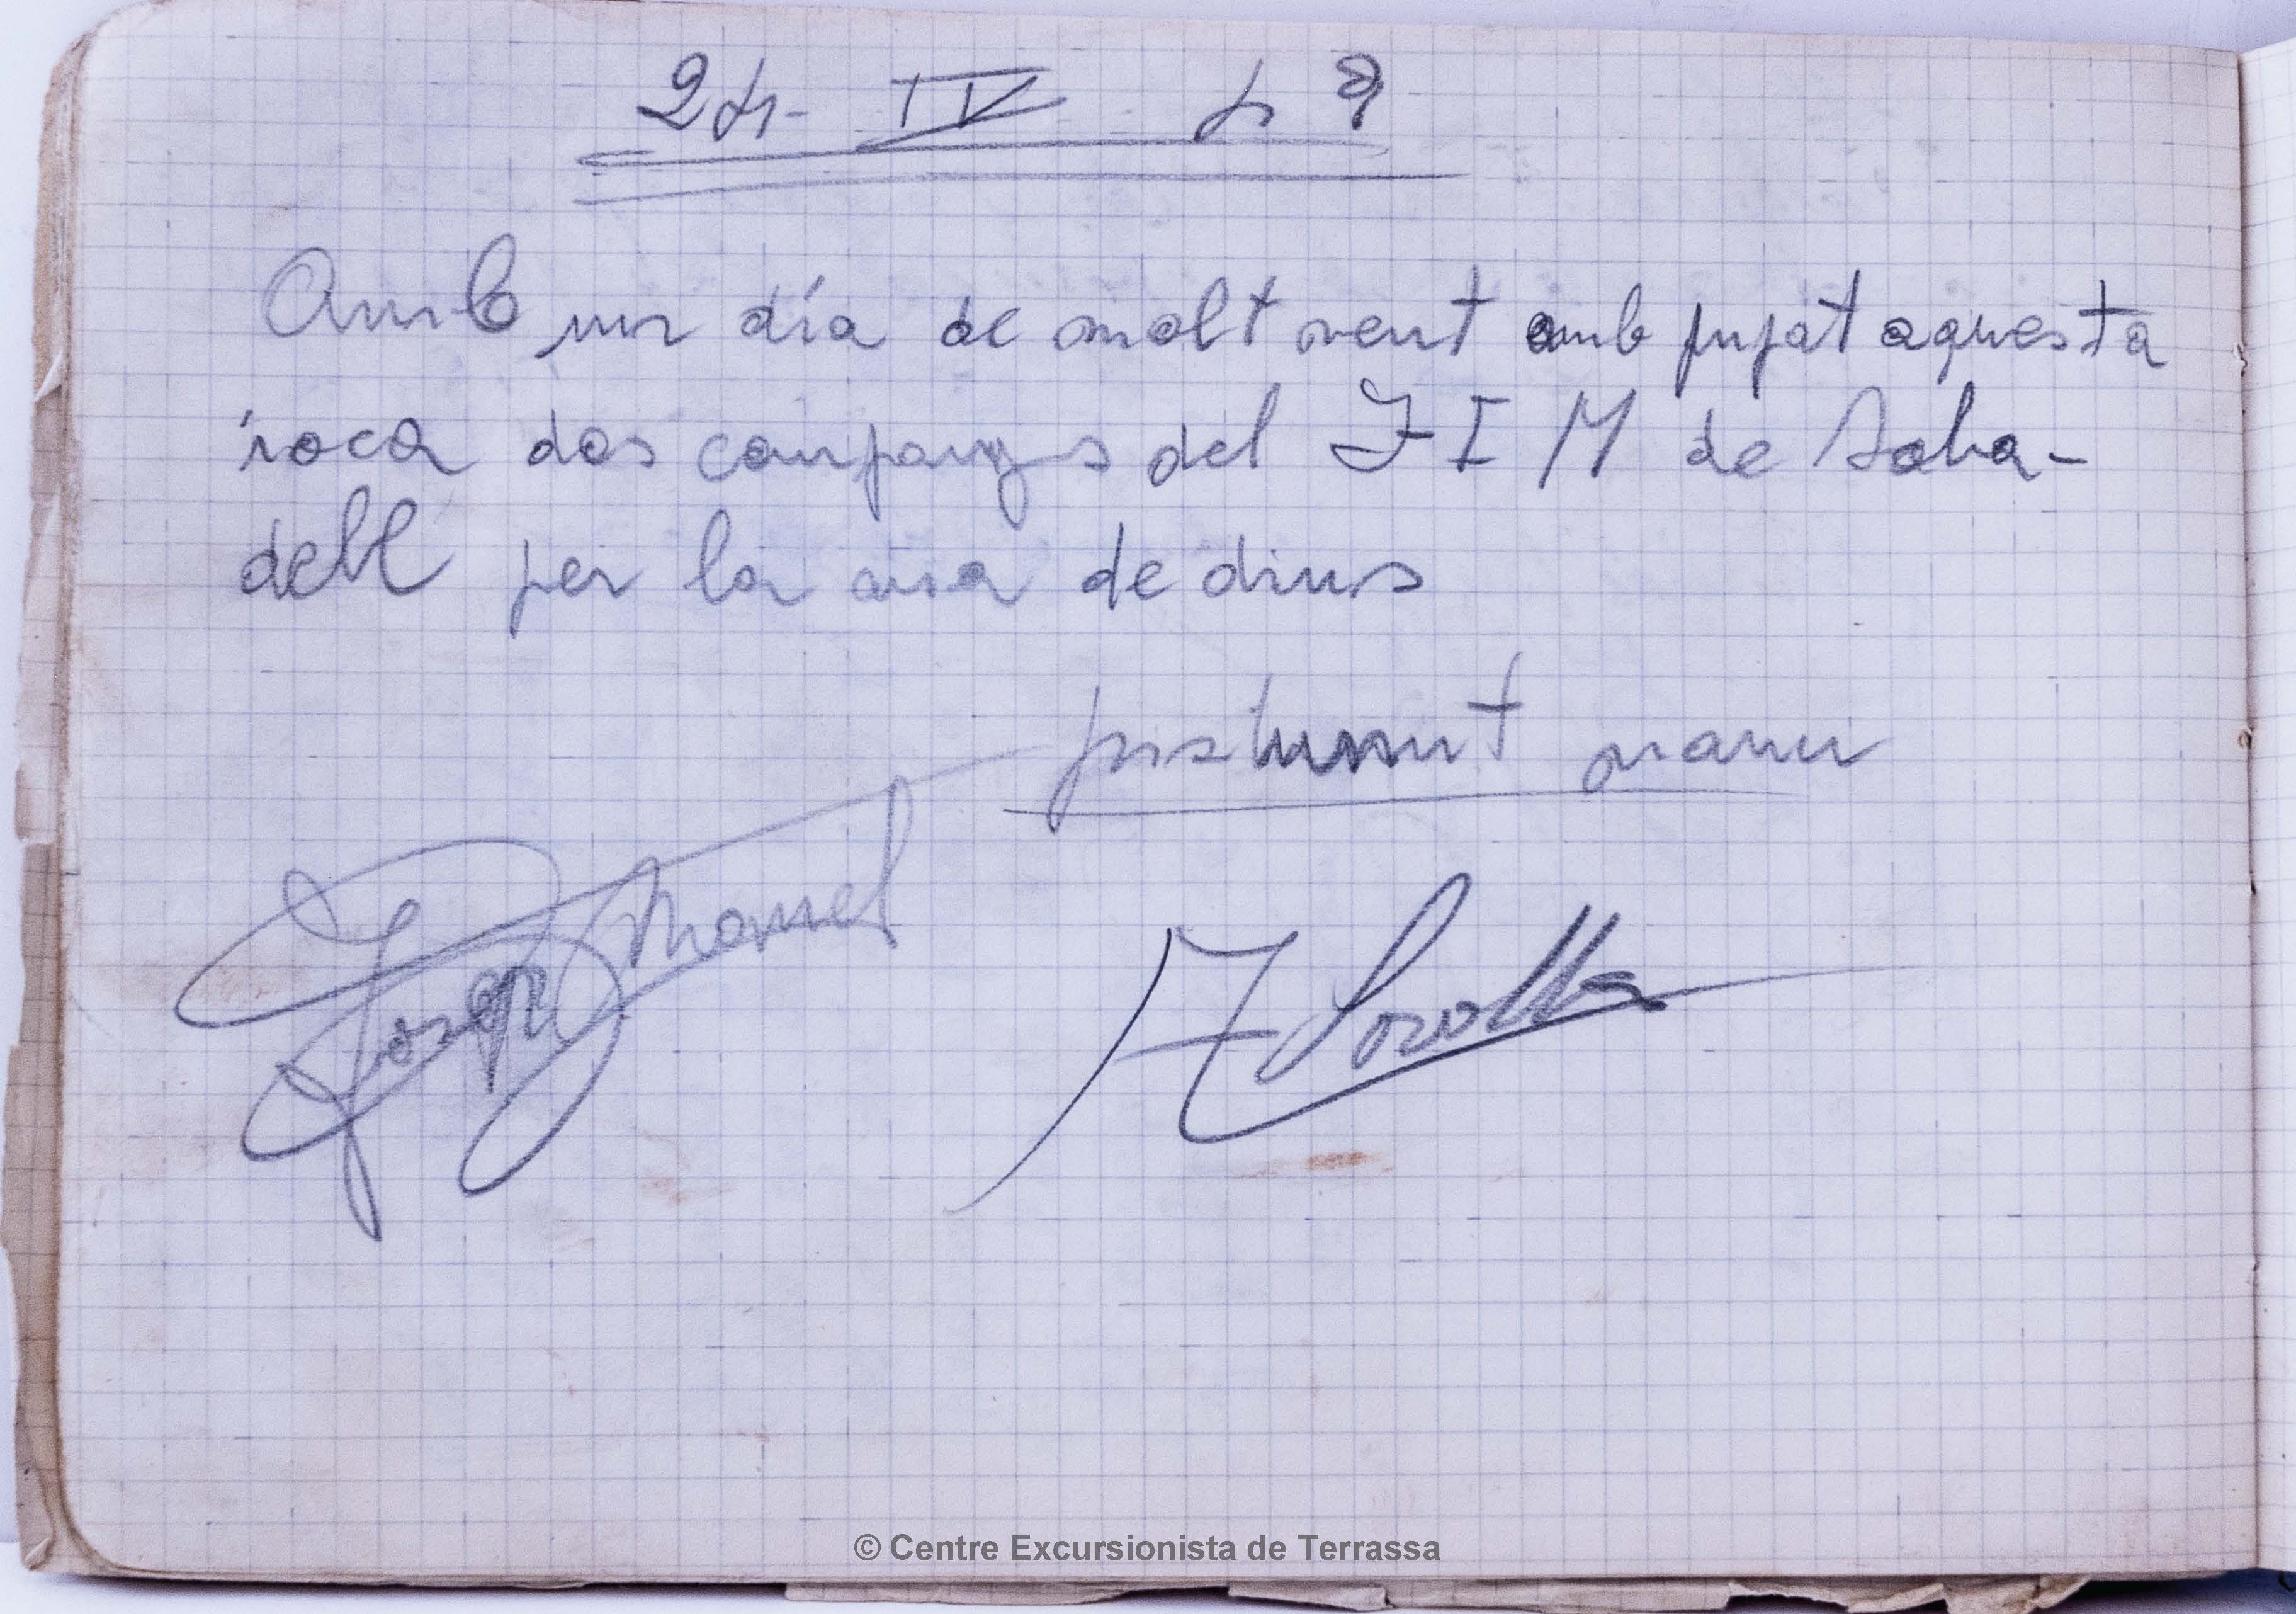 24 - IV 49
Amb un día de molt vent amb pujat aquesta
roca dos companys del J I M de Saba-
dell per la via de dins
Josep Manuel
J Sorolla
© Centre Excursionista de Terrassa